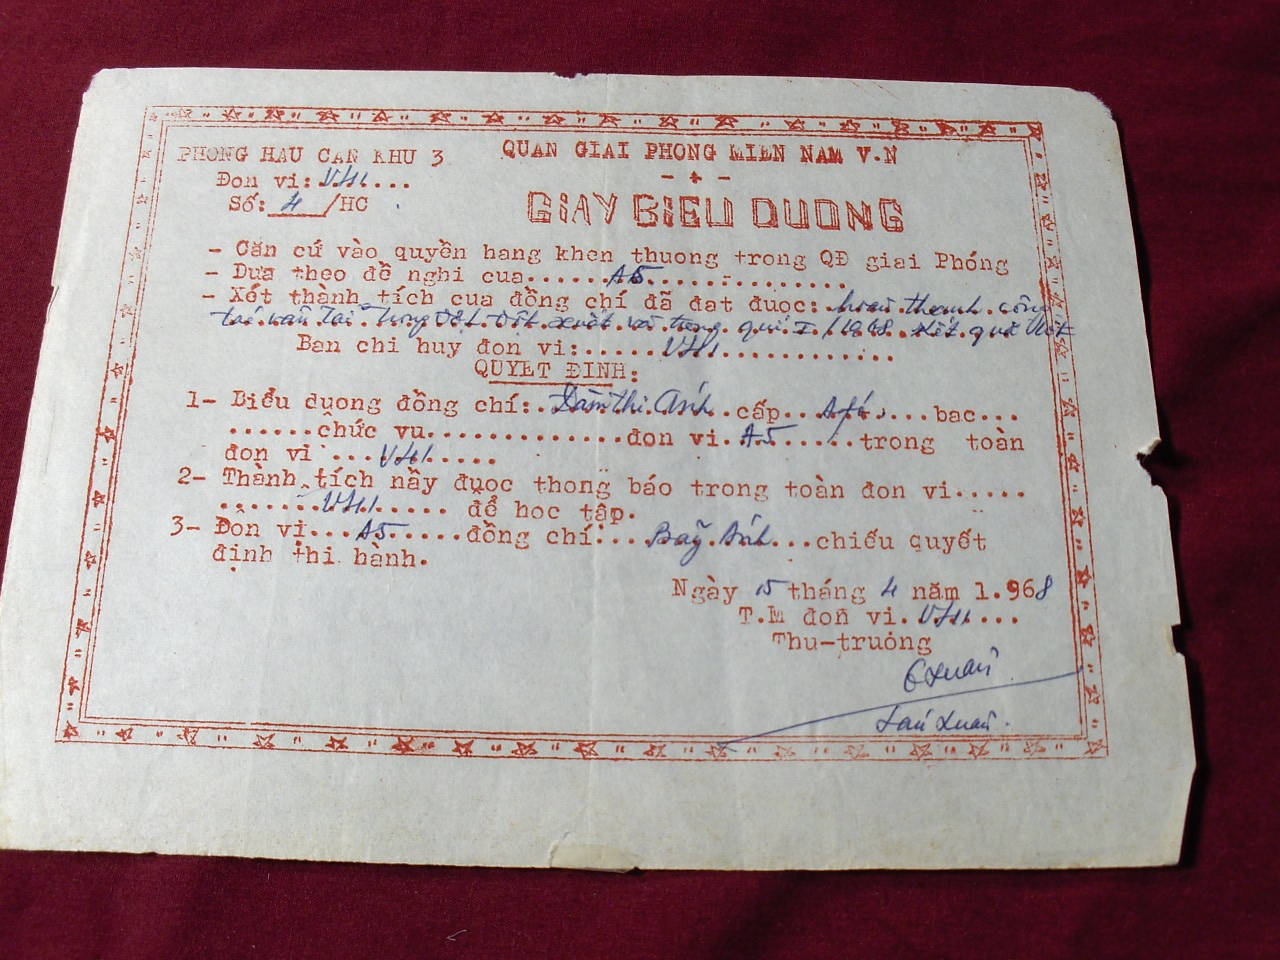 PHONG HAU CAN KHU 3
QUAN GIAI PHONG MIEN NAM V.N
Đon vi: VH1...
Số: 4 /HC
GIAY BIEU DUONG
- Căn cứ vào quyền hang khen thuong trong QĐ giai Phóng
- Dưa theo đề nghi cua......A5...............
- Xét thành tích cua đồng chí đã đat đuoc: hoàn thanh công
tác vận tải trong đột xuất và trong quí I/1968. Kết quả tốt
Ban chi huy đon vi:......VH1.............
QUYET ĐINH:
1- Biểu duong đồng chí:.Đàm thi Ánh.cấp...Afó.....bac...
......chức vu..............đon vi.A5......trong toàn
đon vi ...VH1.....
2- Thành tích nầy đuoc thong báo trong toàn đon vi.....
........VH1..... để hoc tâp.
3- Đon vi...A5......đồng chí:...Bảy Ánh...chiếu quyết
đinh thi hành.
Ngày 15 tháng 4 năm 1.968
T.M đon vi.VH1...
Thu-truong
6 Xuân
Xuân.